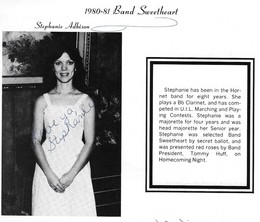 1980-81 Band Sweetheart
Stephanie Adkison
Love you,
Steph
Stephanie has been in the Hor-
net band for eight years. She
plays a Bb Clarinet, and has com-
peted in U.I.L. Marching and Play-
ing Contests. Stephanie was a
majorette for four years and was
head majorette her Senior year.
Stephanie was selected Band
Sweetheart by secret ballot, and
was presented red roses by Band
President, Tommy Huff, on
Homecoming Night.